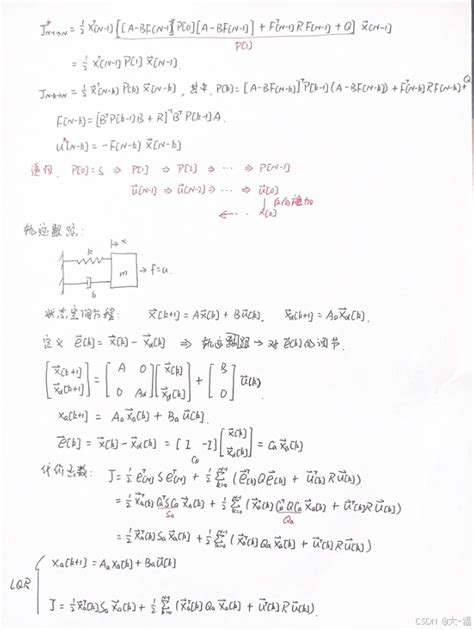 J*_{N-1→N} = ½ x^T[N-1] { [A-BF[N-1]]^T P[0] [A-BF[N-1]] + F^T[N-1] R F[N-1] + Q } x⃗[N-1]
P[1]
= ½ x⃗^T[N-1] P[1] x⃗[N-1]
J_{N-k→N} = ½ x⃗^T[N-k] P[k] x⃗[N-k], 其中, P[k] = [A-BF[N-k]]^T P[k-1] (A-BF[N-k]) + F^T[N-k] R F[N-k] + Q
F[N-k] = [B^T P[k-1] B + R]^{-1} B^T P[k-1] A.
u⃗*[N-k] = -F[N-k] x⃗[N-k]
P[0]=S ⇒ P[1] ⇒ P[2] ⇒ ⋯ ⇒ P[N-1]
u⃗[N-1] ⇒ u⃗[N-2] ⇒ ⋯ ⇒ u⃗[0]
← ⋯ x⃗[0]
轨迹跟踪:
x
k
m → f=u.
b
状态空间方程: x⃗[k+1] = A x⃗[k] + B u⃗[k], x⃗_d[k+1] = A_D x⃗_d[k].
定义 e⃗[k] = x⃗[k] - x⃗_d[k] ⇒ 轨迹跟踪 → 对 e⃗[k] 的调节.
[x⃗[k+1] ; x⃗_d[k+1]] = [A 0 ; 0 A_d] [x⃗[k] ; x⃗_d[k]] + [B ; 0] u⃗[k]
x_a[k+1] = A_a x⃗_a[k] + B_a u⃗[k].
e⃗[k] = x⃗[k] - x⃗_d[k] = [I -I] [x⃗[k] ; x⃗_d[k]] = C_a x⃗_a[k]
C_a
代价函数: J = ½ e^T[N] S e⃗[N] + ½ Σ_{k=0}^{N-1} (e⃗^T[k] Q e⃗[k] + u⃗^T[k] R u⃗[k])
= ½ x⃗_a^T[k] C_a^T S C_a x⃗_a[k] + ½ Σ_{k=0}^{N-1} (x⃗_a^T[k] C_a^T Q C_a x⃗_a[k] + u⃗^T[k] R u⃗[k])
S_a Q_a
= ½ x⃗_a^T[k] S_a x⃗_a[k] + ½ Σ_{k=0}^{N-1} (x⃗_a^T[k] Q_a x⃗_a[k] + u⃗^T[k] R u⃗[k])
LQR
x_a[k+1] = A_a x_a[k] + B_a u⃗[k]
J = ½ x⃗_a^T[k] S_a x⃗_a[k] + ½ Σ_{k=0}^{N-1} (x⃗_a^T[k] Q_a x⃗_a[k] + u⃗^T[k] R u⃗[k])